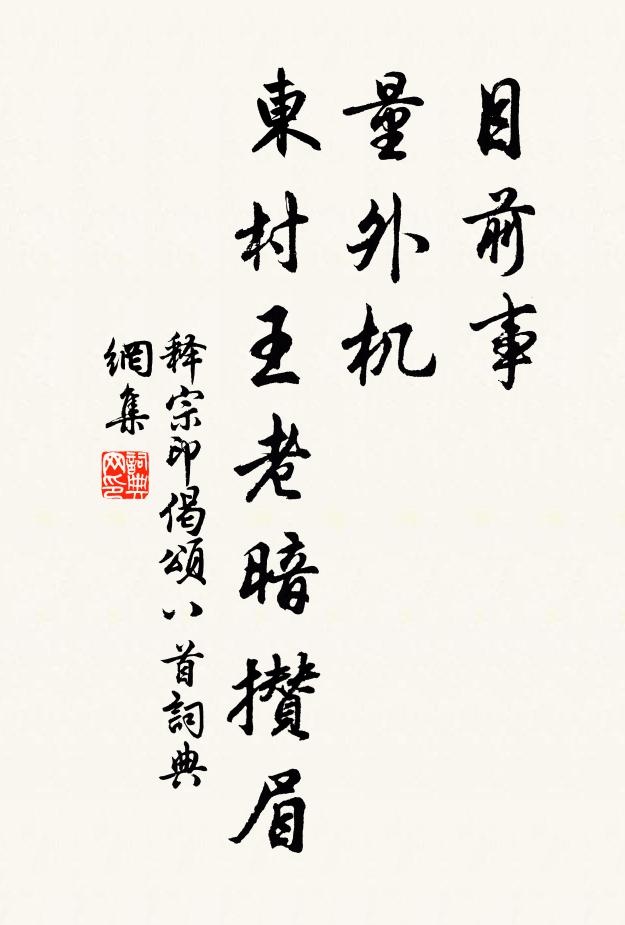 目前事
量外机
東村王老暗攅眉
释宗印偈頌八首詞典
網集
詞典
网印